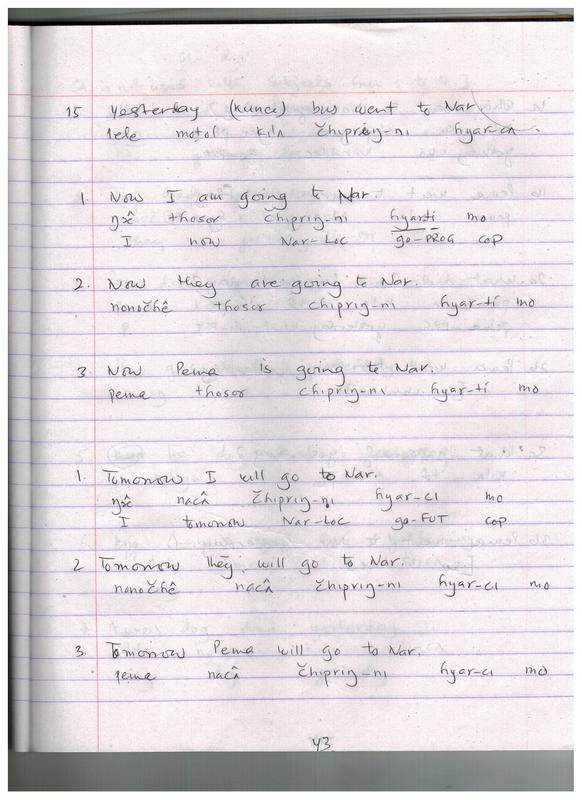 15 Yesterday (kunce) bus went to Nar.
tele motol kiln čhipriŋ-ni ɦyar-cin.
1. Now I am going to Nar.
ŋʌ̂ thosor čhipriŋ-ni ɦyarti mo
I now Nar-Loc go-PROG COP
2. Now they are going to Nar.
nonočhê thosor chipriŋ-ni ɦyar-ti mo
3. Now Pema is going to Nar.
pema thosor chipriŋ-ni ɦyar-ti mo
1. Tomorrow I will go to Nar.
ŋʌ̂ nacʌ̂ čhipriŋ-ni ɦyar-ci mo
I tomorrow Nar-Loc go-FUT COP
2 Tomorrow they will go to Nar.
nonočhê nacʌ̂ čhipriŋ-ni ɦyar-ci mo
3. Tomorrow Pema will go to Nar.
pema nacʌ̂ čhipriŋ-ni ɦyar-ci mo
43